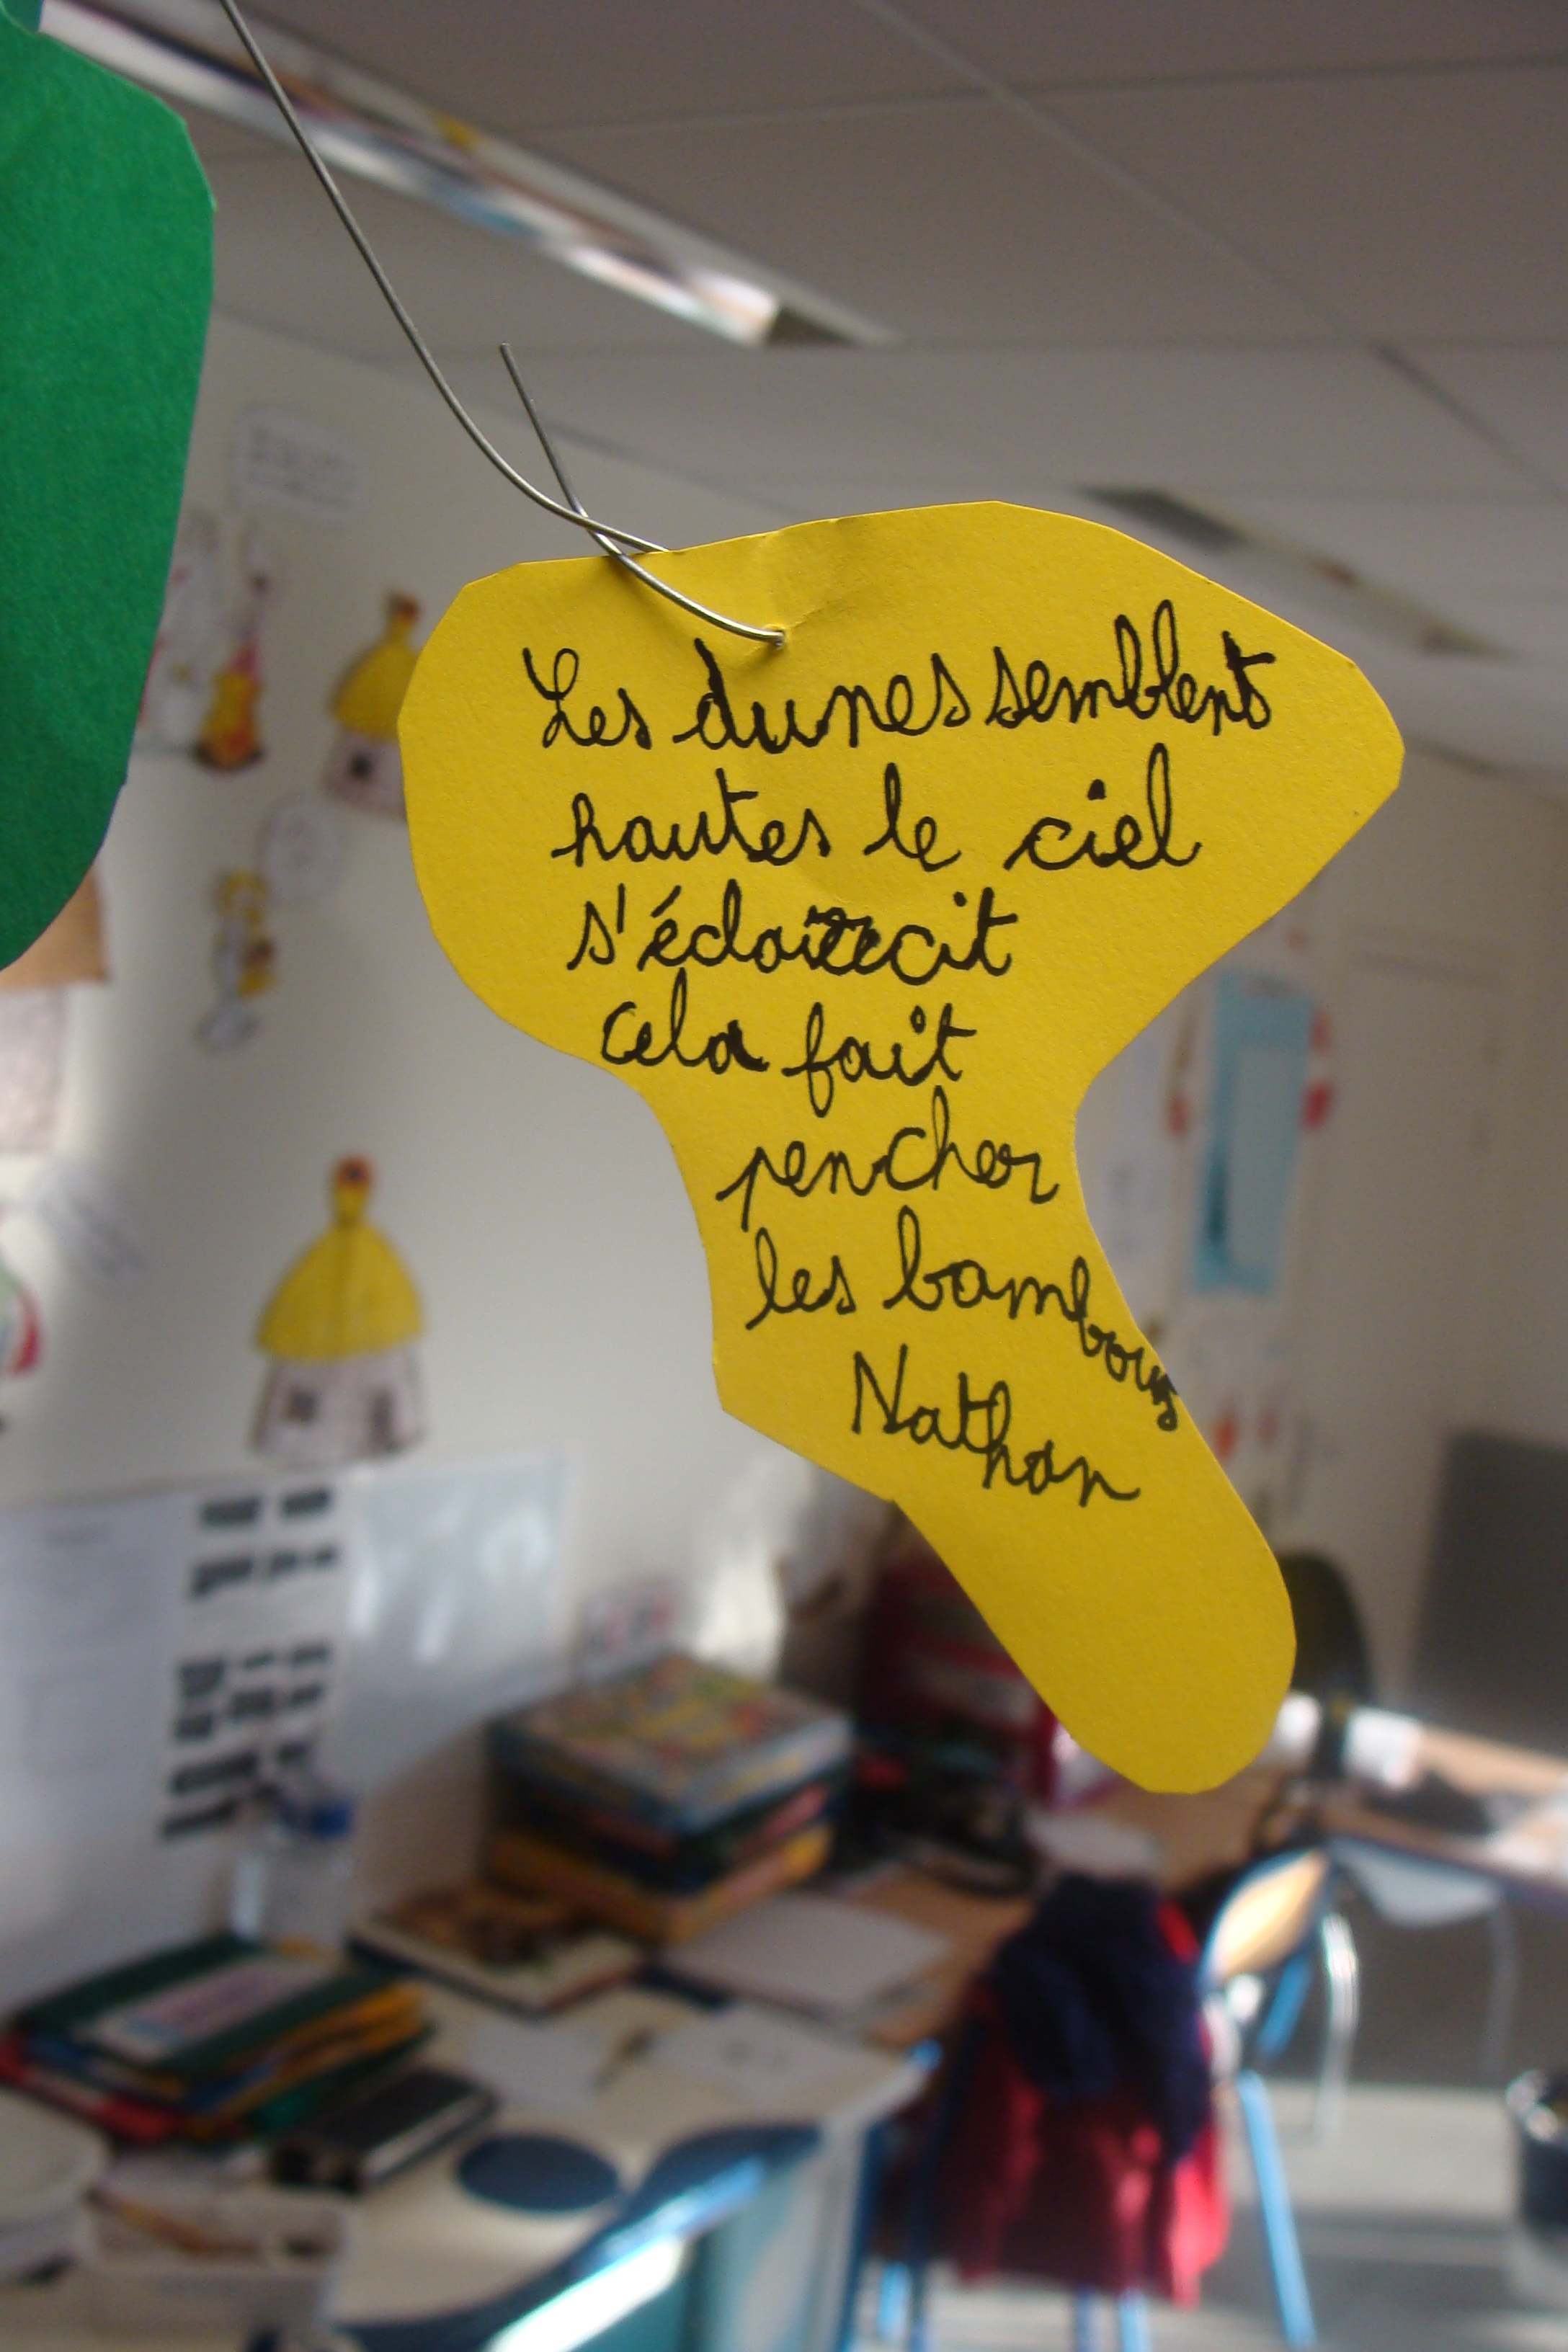 Les dunes semblent
hautes le ciel
s'éclaircit
Cela fait
pencher
les bambous
Nathan